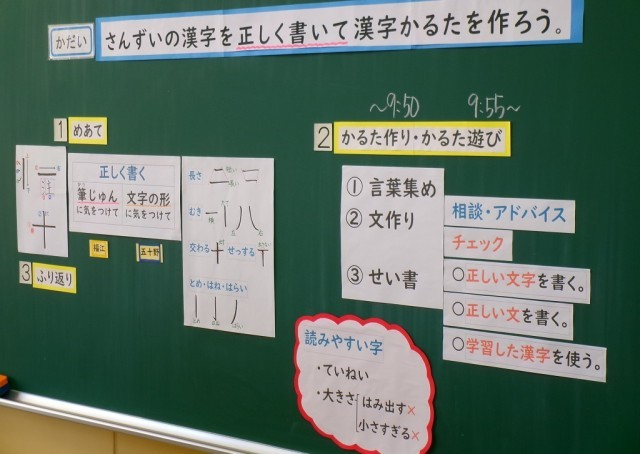 かだい
さんずいの漢字を正しく書いて漢字かるたを作ろう。
1 めあて
正しく書く
筆じゅん
に気をつけて
文字の形
に気をつけて
福江
五十野
長さ
むき
交わる
せっする
とめ・はね・はらい
3 ふり返り
～9:50 9:55～
2 かるた作り・かるた遊び
① 言葉集め
② 文作り
③ せい書
相談・アドバイス
チェック
○正しい文字を書く。
○正しい文を書く。
○学習した漢字を使う。
読みやすい字
・ていねい
・大きさ
はみ出す×
小さすぎる×